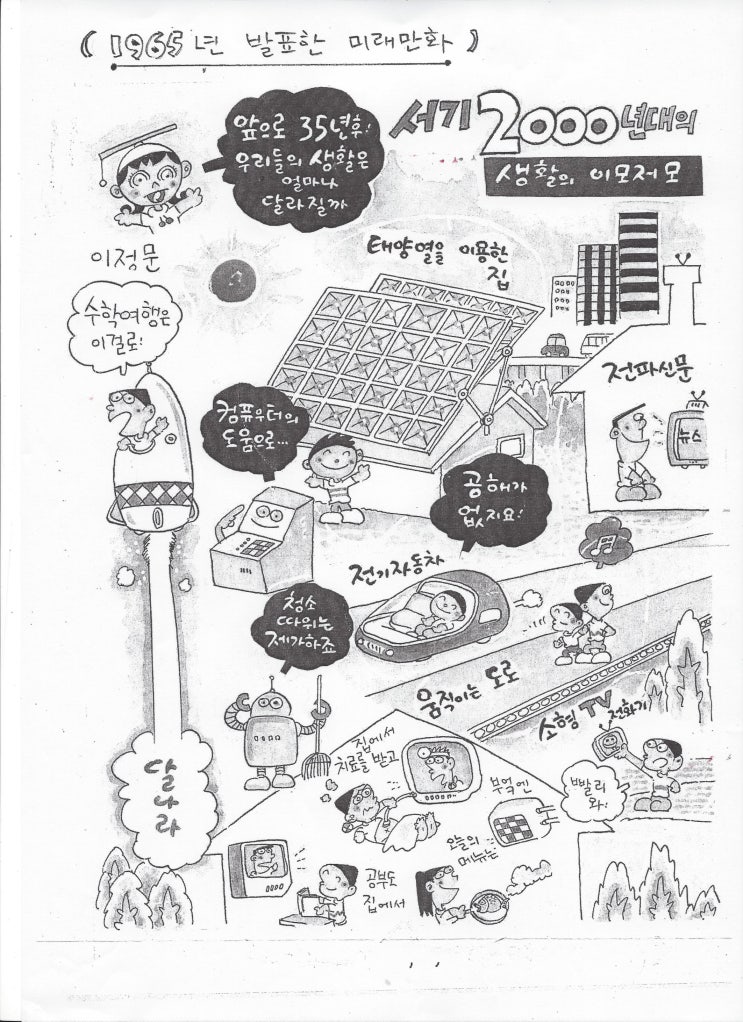 ( 1965년 발표한 미래만화 )
서기 2000년대의
생활의 이모저모
앞으로 35년후!
우리들의 생활은
얼마나
달라질까
이정문
수학여행은
이걸로!
태양열을 이용한
집
전파신문
뉴스
컴퓨우터의
도움으로...
공해가
없지요!
전기자동차
청소
따위는
제가하죠
움직이는 도로
소형 TV 전화기
빨리
와!
달나라
집에서
치료를 받고
부엌엔
오늘의
메뉴는
공부도
집에서